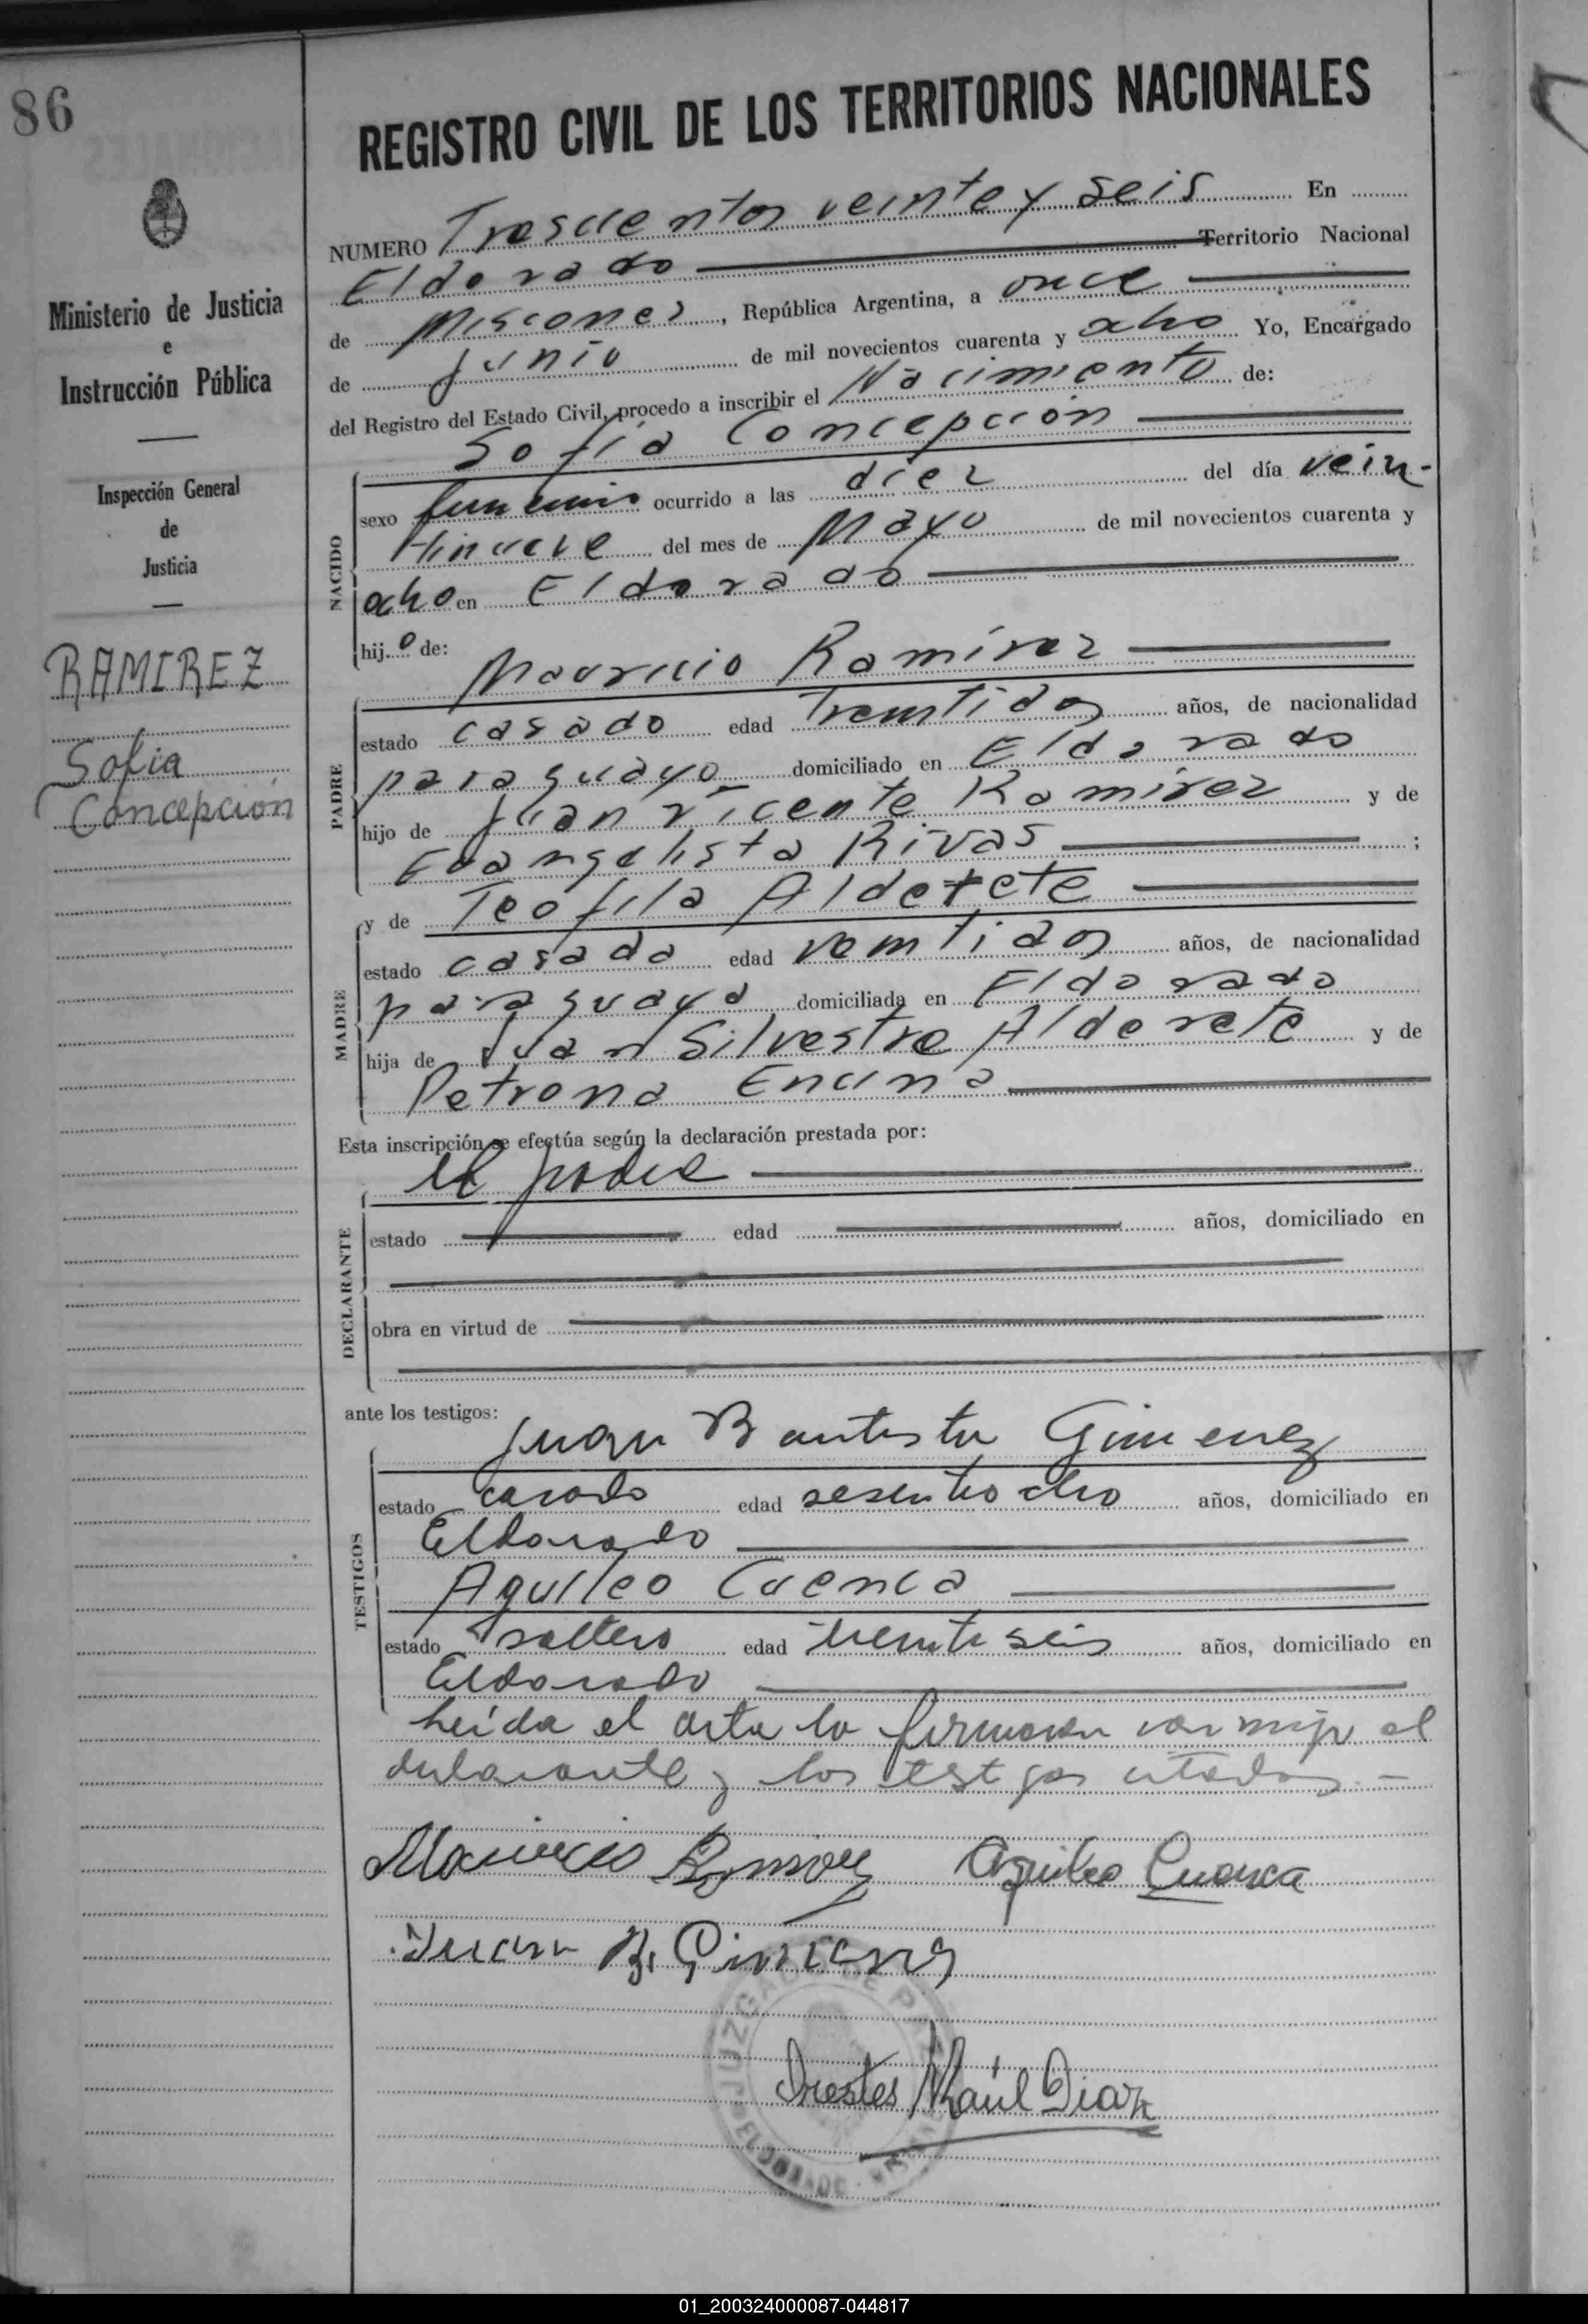 86
Ministerio de Justicia
e
Instrucción Pública
Inspección General
de
Justicia
RAMIREZ
Sofia
Concepción
REGISTRO CIVIL DE LOS TERRITORIOS NACIONALES
NUMERO Trescientos veinte y seis En
Eldorado Territorio Nacional
de Misiones, República Argentina, a once
de junio de mil novecientos cuarenta y ocho Yo, Encargado
del Registro del Estado Civil, procedo a inscribir el Nacimiento de:
Sofía Concepción
NACIDO
sexo femenino ocurrido a las diez del día vein-
tinueve del mes de Mayo de mil novecientos cuarenta y
ocho en Eldorado
hij.o de:
Mauricio Ramírez
PADRE
estado casado edad Treintidos años, de nacionalidad
paraguayo domiciliado en Eldorado
hijo de Juan Vicente Ramírez y de
Evangelista Rivas ;
MADRE
y de Teofila Alderete
estado casada edad veintidos años, de nacionalidad
paraguaya domiciliada en Eldorado
hija de Juan Silvestre Alderete y de
Petrona Encina
Esta inscripción se efectúa según la declaración prestada por:
el padre
DECLARANTE
estado edad años, domiciliado en
obra en virtud de
ante los testigos:
Juan Bautista Gimenez
TESTIGOS
estado casado edad sesentiocho años, domiciliado en
Eldorado
Aquileo Cuenca
estado soltero edad treintiseis años, domiciliado en
Eldorado
Leída el acta la firmaron conmigo el
declarante y los testigos citados.-
Mauricio Ramírez Aquileo Cuenca
Juan B. Gimenez
JUZGADO DE PAZ
Orestes Raúl Diaz
ELDORADO
01_200324000087-044817